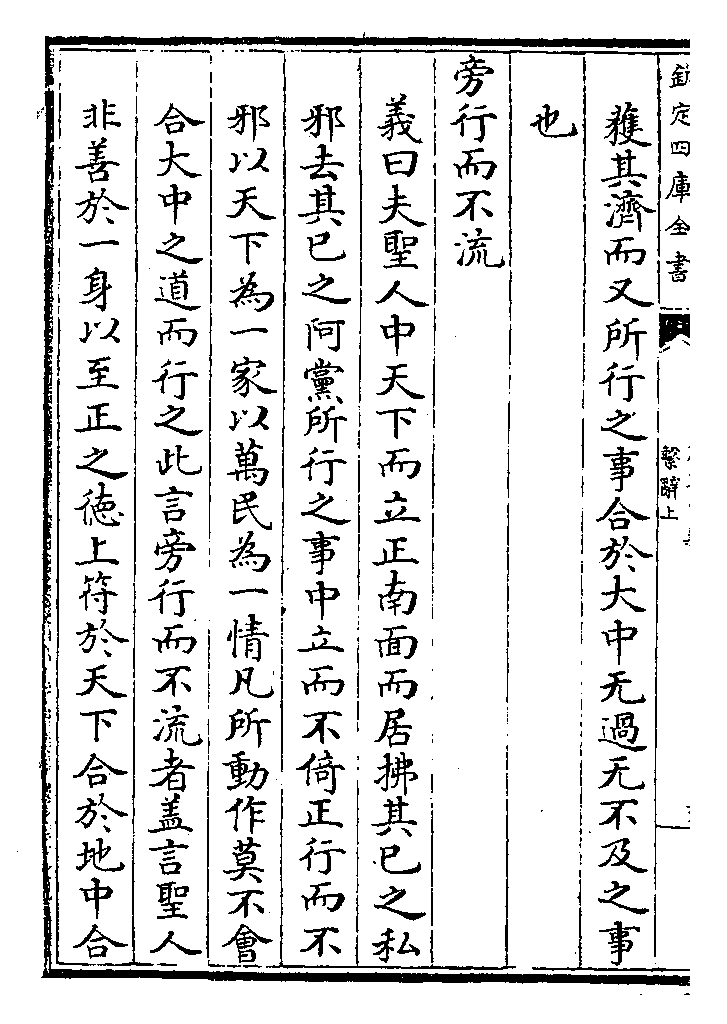 欽定四庫全書
繫辭上
獲其濟而又所行之事合於大中无過无不及之事
也
旁行而不流
義曰夫聖人中天下而立正南面而居拂其已之私
邪去其已之阿黨所行之事中立而不倚正行而不
邪以天下為一家以萬民為一情凡所動作莫不會
合大中之道而行之此言旁行而不流者盖言聖人
非善於一身以至正之徳上符於天下合於地中合